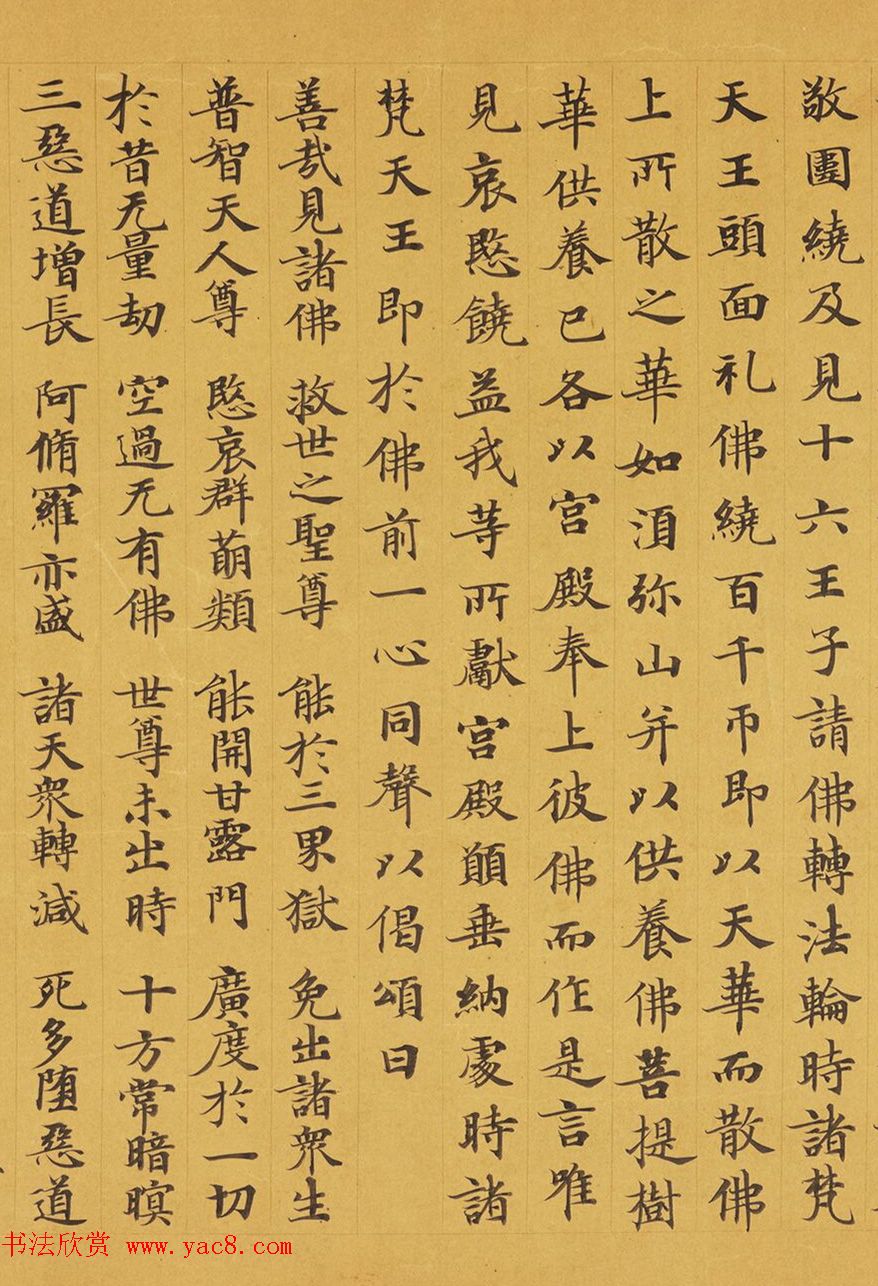 敬圍繞及見十六王子請佛轉法輪時諸梵
天王頭面礼佛繞百千帀即以天華而散佛
上所散之華如湏弥山并以供養佛菩提樹
華供養已各以宫殿奉上彼佛而作是言唯
見哀愍饒益我等所獻宫殿願垂納處時諸
梵天王即於佛前一心同聲以偈頌曰
善哉見諸佛 救世之聖尊 能於三界獄 免出諸衆生
普智天人尊 愍哀群萌類 能開甘露門 廣度於一切
於昔无量劫 空過无有佛 世尊未出時 十方常暗暝
三惡道增長 阿脩羅亦盛 諸天衆轉減 死多堕惡道
书法欣赏 www.yac8.com